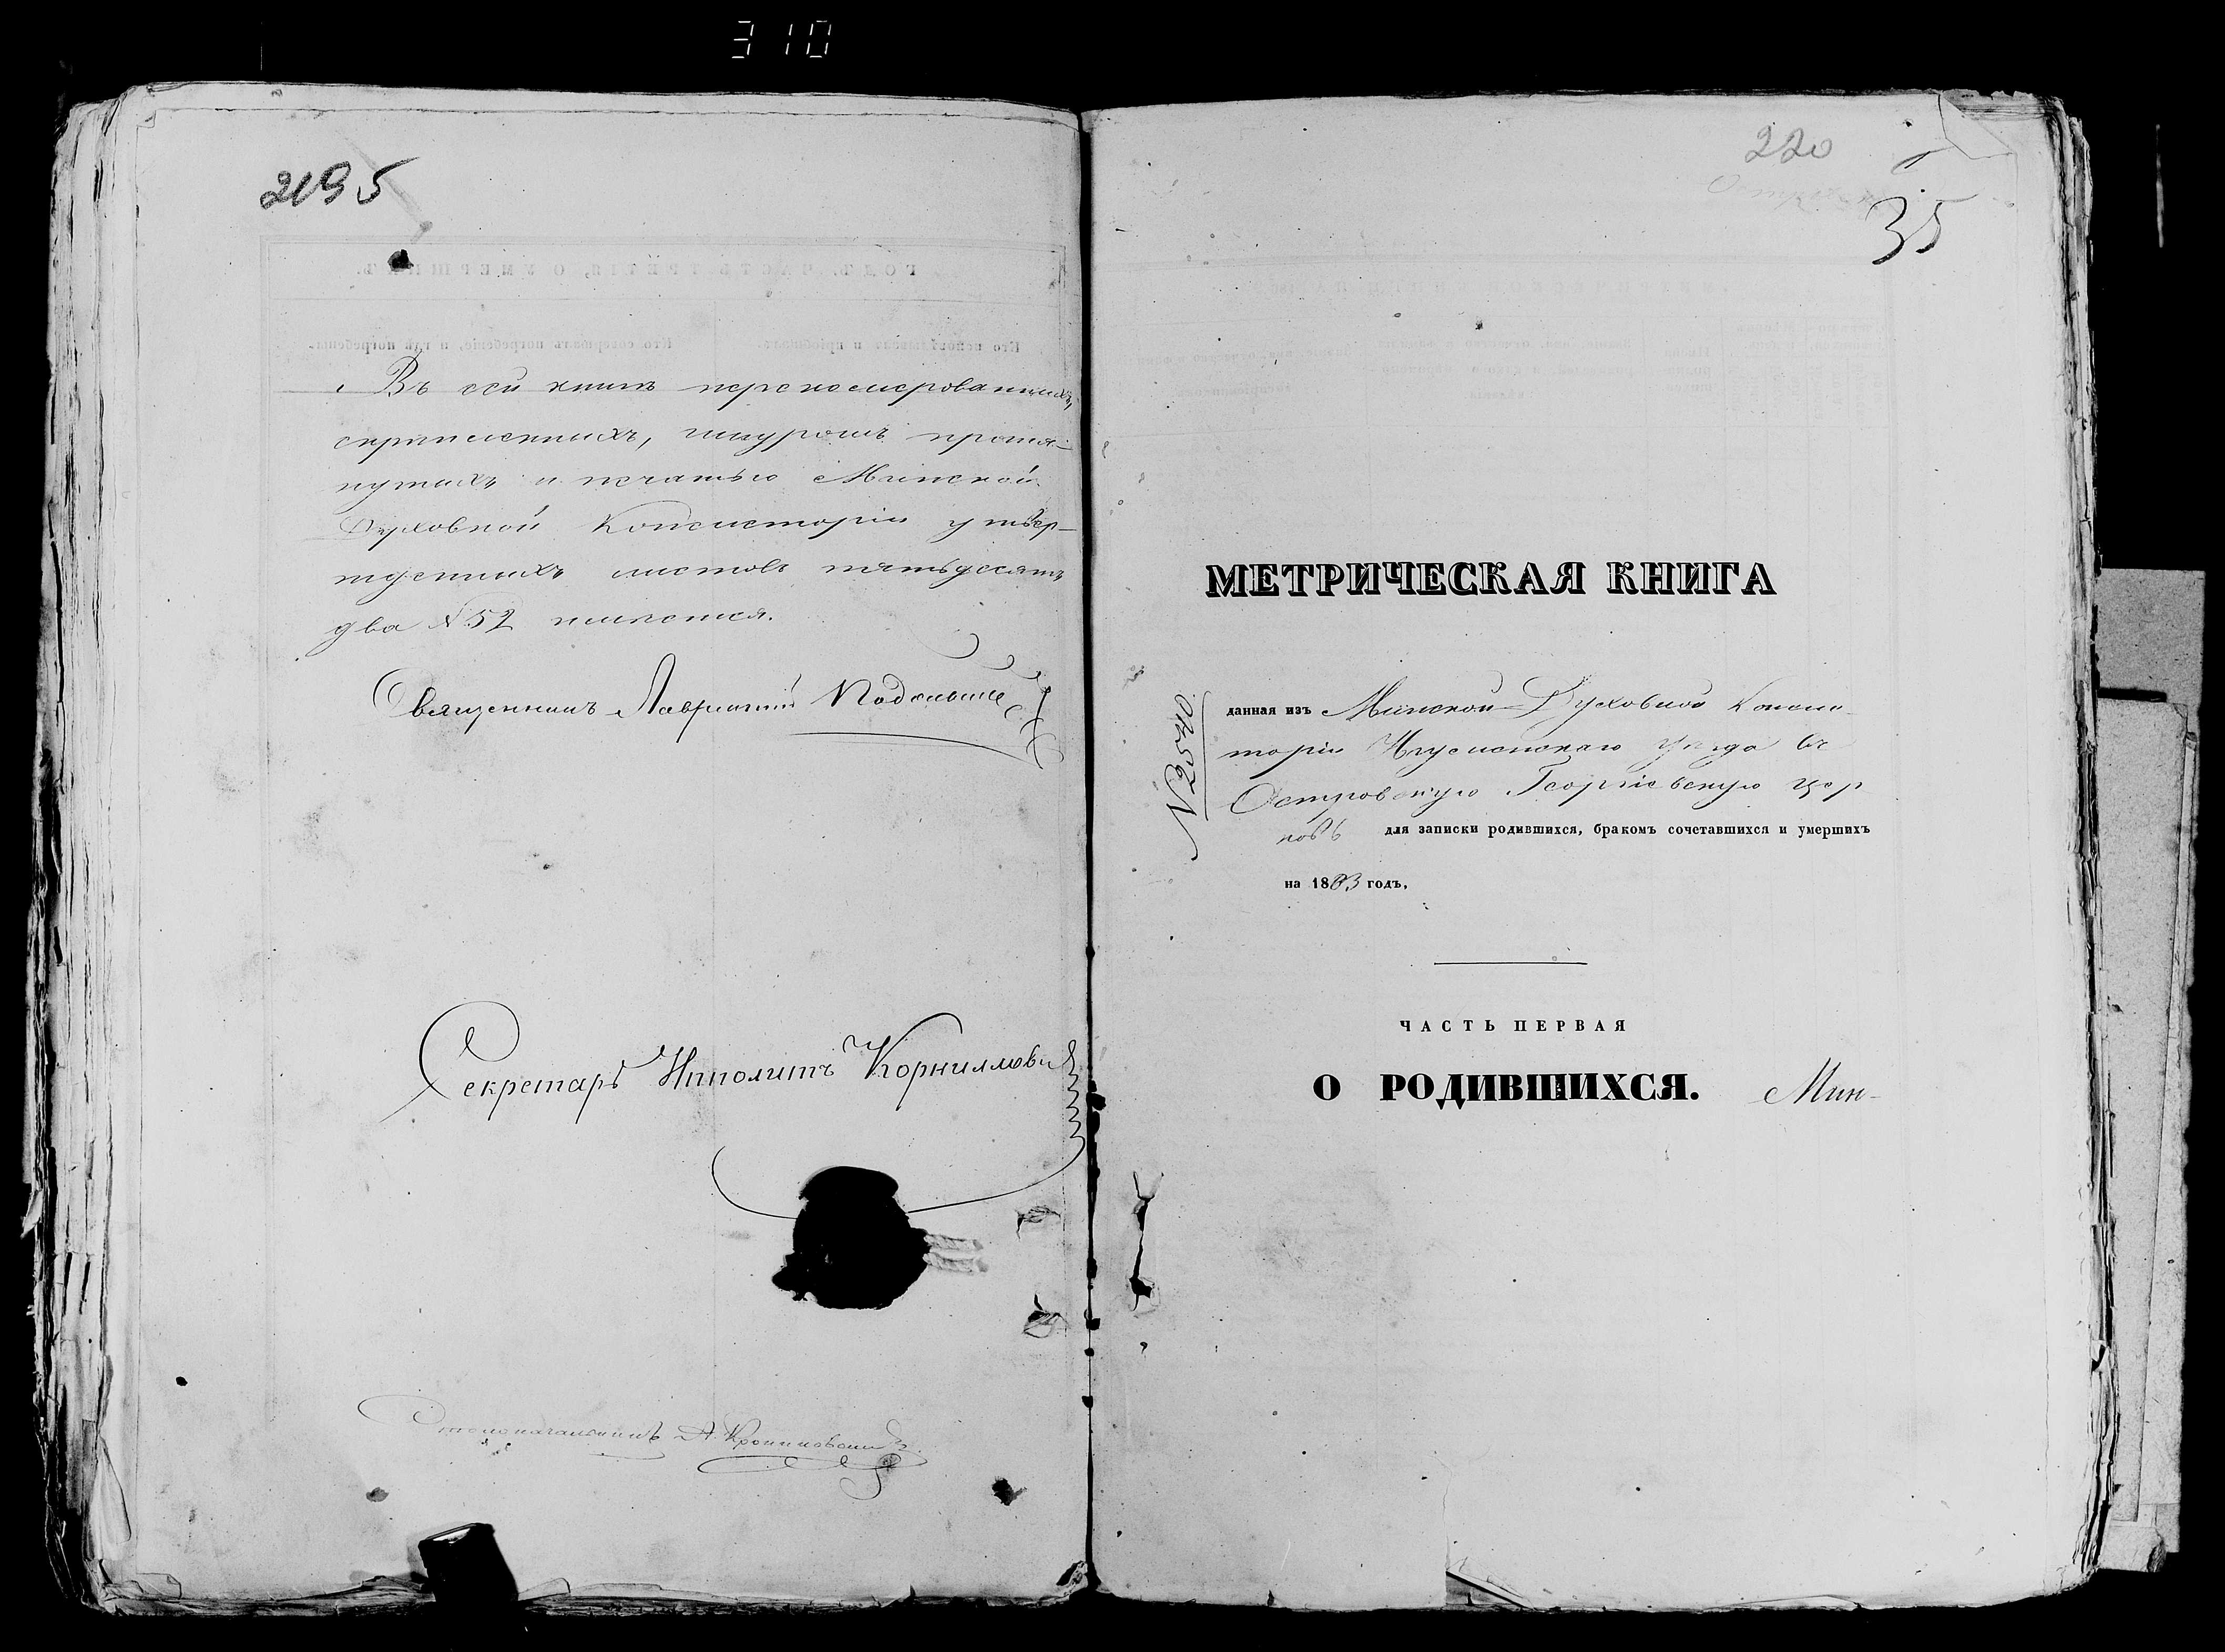 310
2195
Въ сей книгѣ перенумерованныхъ,
скрѣпленныхъ, шнуромъ протя-
нутыхъ и печатью Минской
Духовной Консисторіи утвер-
жденныхъ листовъ пятьдесятъ
два №52 имѣется.
Священникъ Лаврентій
Секретарь Ипполитъ Корнилови
Столоначальникъ А.
220
35
МЕТРИЧЕСКАЯ КНИГА
№2540
данная изъ Минской Духовной Консис-
торіи Игуменскаго уѣзда въ
Островскую Георгіевскую цер
ковь для записки родившихся, бракомъ сочетавшихся и умершихъ
на 1883 годъ.
ЧАСТЬ ПЕРВАЯ
О РОДИВШИХСЯ. Мин-